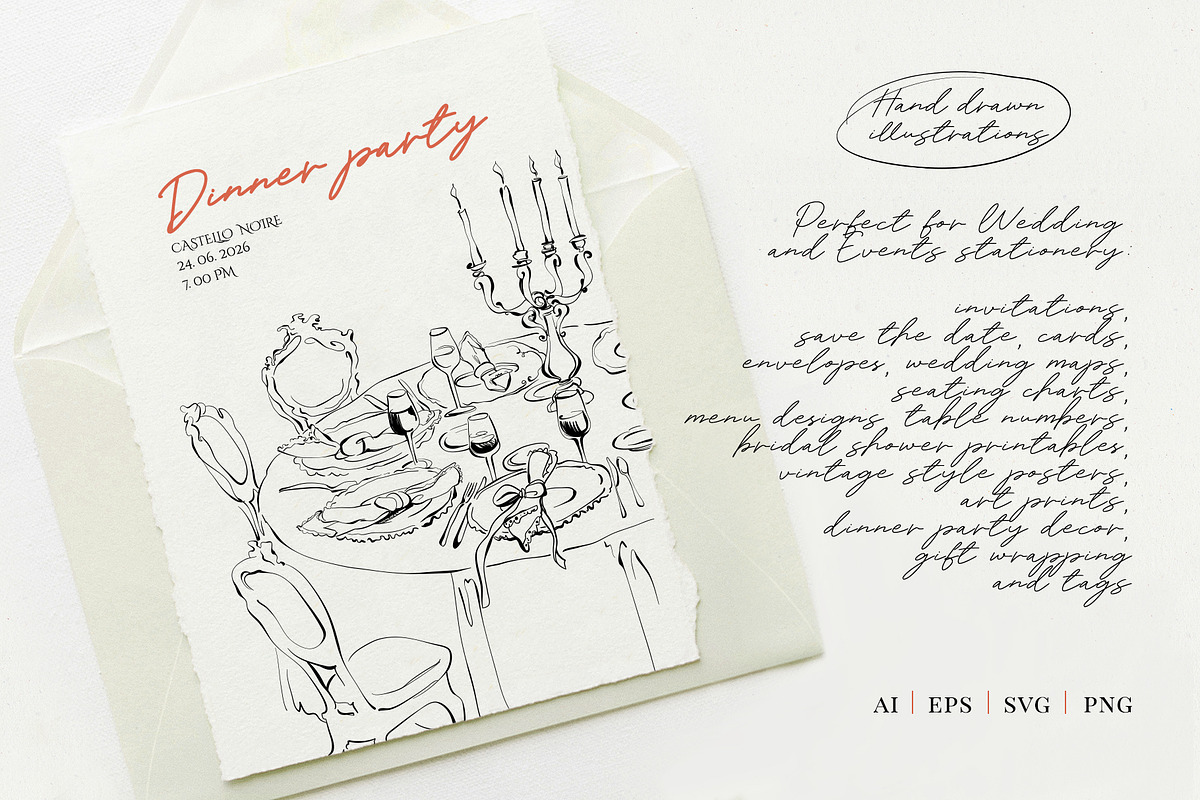 Dinner party
CASTELLO NOIRE
24. 06. 2026
7. 00 PM
Hand drawn
illustrations
Perfect for Wedding
and Events stationery:
invitations,
save the date, cards,
envelopes, wedding maps,
seating charts,
menu designs, table numbers,
bridal shower printables,
vintage style posters,
art prints,
dinner party decor,
gift wrapping
and tags
AI | EPS | SVG | PNG